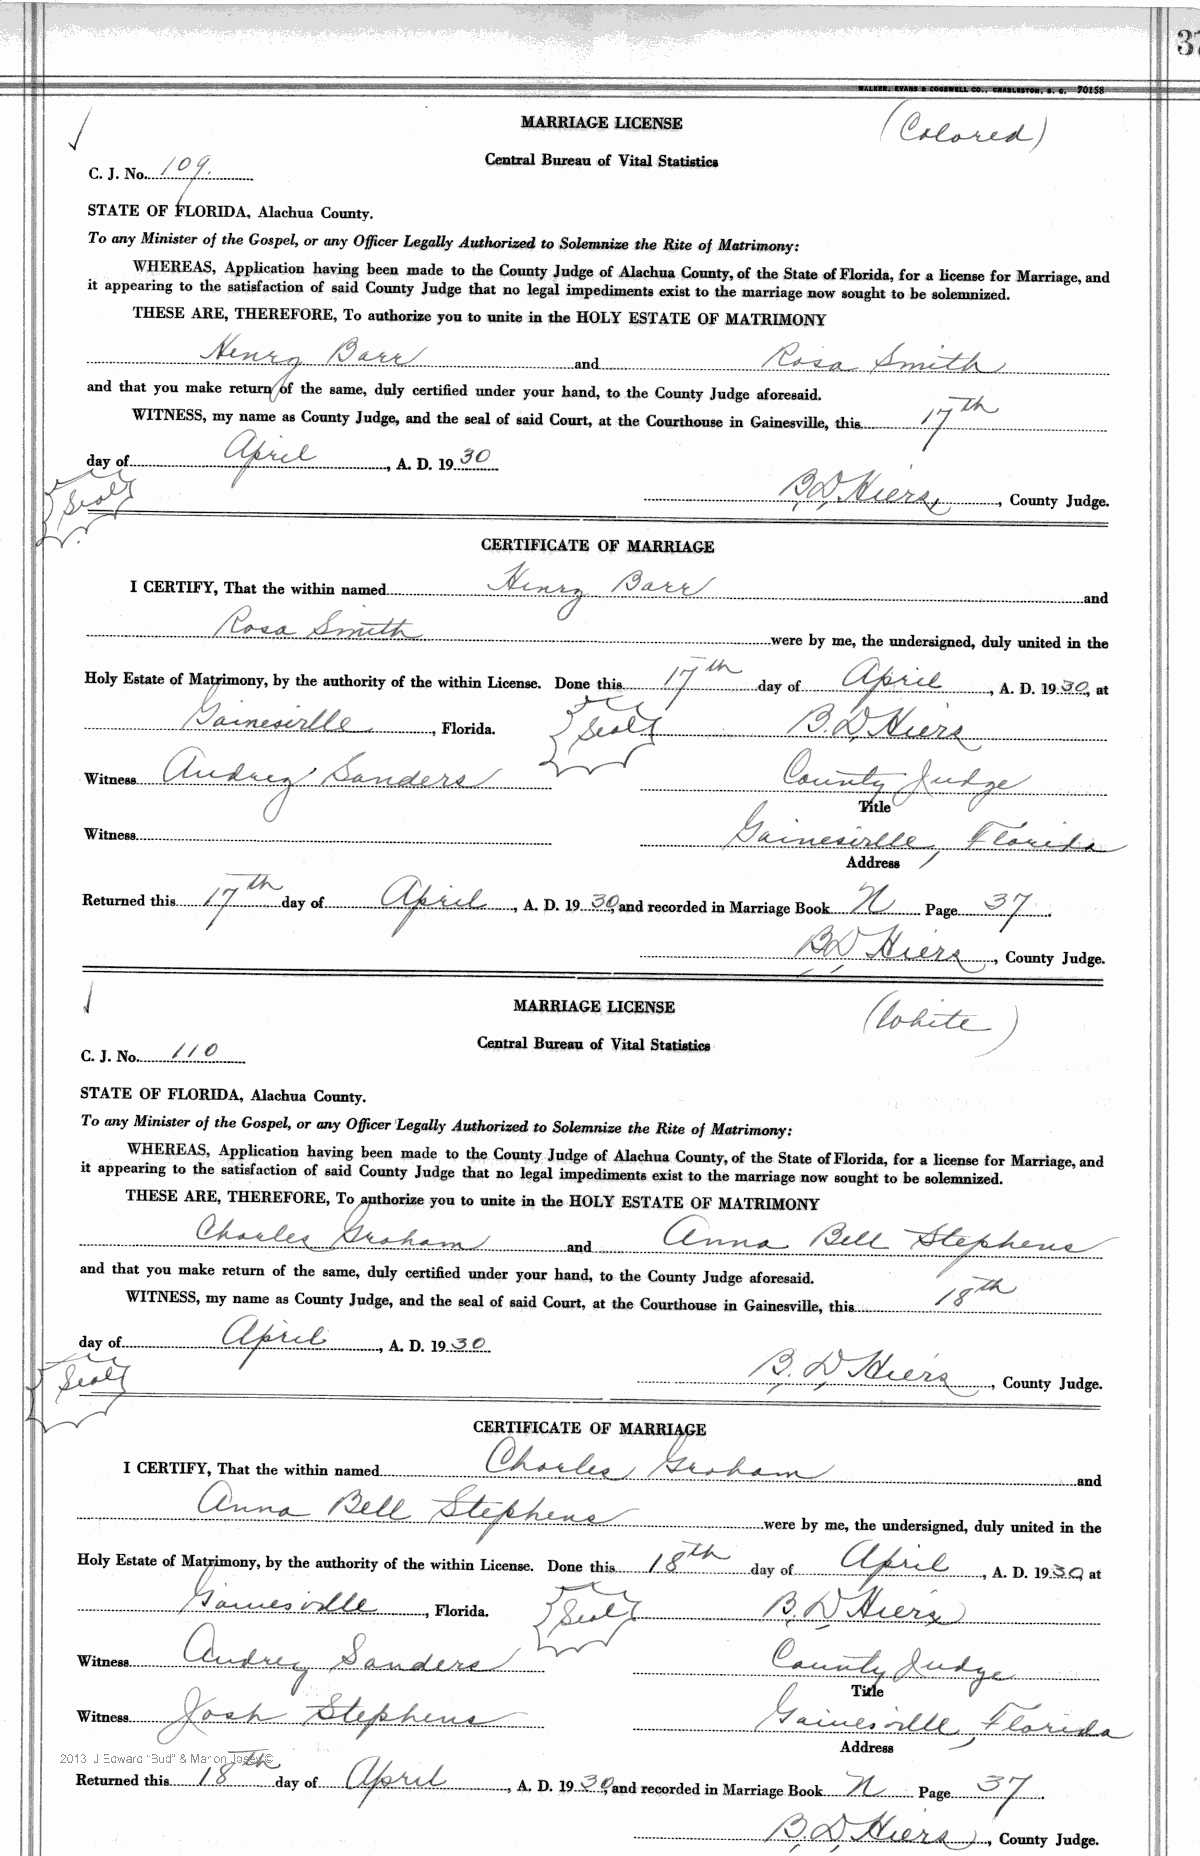 37
WALKER, EVANS & COGSWELL CO., CHARLESTON, S. C. 70158
MARRIAGE LICENSE (Colored)
Central Bureau of Vital Statistics
C. J. No. 109.
STATE OF FLORIDA, Alachua County.
To any Minister of the Gospel, or any Officer Legally Authorized to Solemnize the Rite of Matrimony:
WHEREAS, Application having been made to the County Judge of Alachua County, of the State of Florida, for a license for Marriage, and
it appearing to the satisfaction of said County Judge that no legal impediments exist to the marriage now sought to be solemnized.
THESE ARE, THEREFORE, To authorize you to unite in the HOLY ESTATE OF MATRIMONY
Henry Barr and Rosa Smith
and that you make return of the same, duly certified under your hand, to the County Judge aforesaid.
WITNESS, my name as County Judge, and the seal of said Court, at the Courthouse in Gainesville, this 17th
day of April, A. D. 1930
Seal B. D. Hiers, County Judge.
CERTIFICATE OF MARRIAGE
I CERTIFY, That the within named Henry Barr and
Rosa Smith were by me, the undersigned, duly united in the
Holy Estate of Matrimony, by the authority of the within License. Done this 17th day of April, A. D. 1930, at
Gainesville, Florida. Seal B. D. Hiers
Witness Audrey Sanders County Judge
Title
Witness Gainesville, Florida
Address
Returned this 17th day of April, A. D. 1930, and recorded in Marriage Book N Page 37.
B D Hiers, County Judge.
MARRIAGE LICENSE (White)
Central Bureau of Vital Statistics
C. J. No. 110
STATE OF FLORIDA, Alachua County.
To any Minister of the Gospel, or any Officer Legally Authorized to Solemnize the Rite of Matrimony:
WHEREAS, Application having been made to the County Judge of Alachua County, of the State of Florida, for a license for Marriage, and
it appearing to the satisfaction of said County Judge that no legal impediments exist to the marriage now sought to be solemnized.
THESE ARE, THEREFORE, To authorize you to unite in the HOLY ESTATE OF MATRIMONY
Charles Graham and Anna Bell Stephens
and that you make return of the same, duly certified under your hand, to the County Judge aforesaid.
WITNESS, my name as County Judge, and the seal of said Court, at the Courthouse in Gainesville, this 18th
day of April, A. D. 1930
Seal B. D. Hiers, County Judge.
CERTIFICATE OF MARRIAGE
I CERTIFY, That the within named Charles Graham and
Anna Bell Stephens were by me, the undersigned, duly united in the
Holy Estate of Matrimony, by the authority of the within License. Done this 18th day of April, A. D. 1930, at
Gainesville, Florida. Seal B. D. Hiers
Witness Audrey Sanders County Judge
Title
Witness Josh Stephens Gainesville, Florida
Address
2013 J Edward "Bud" & Marion Josey©
Returned this 18th day of April, A. D. 1930, and recorded in Marriage Book N Page 37.
B. D. Hiers, County Judge.